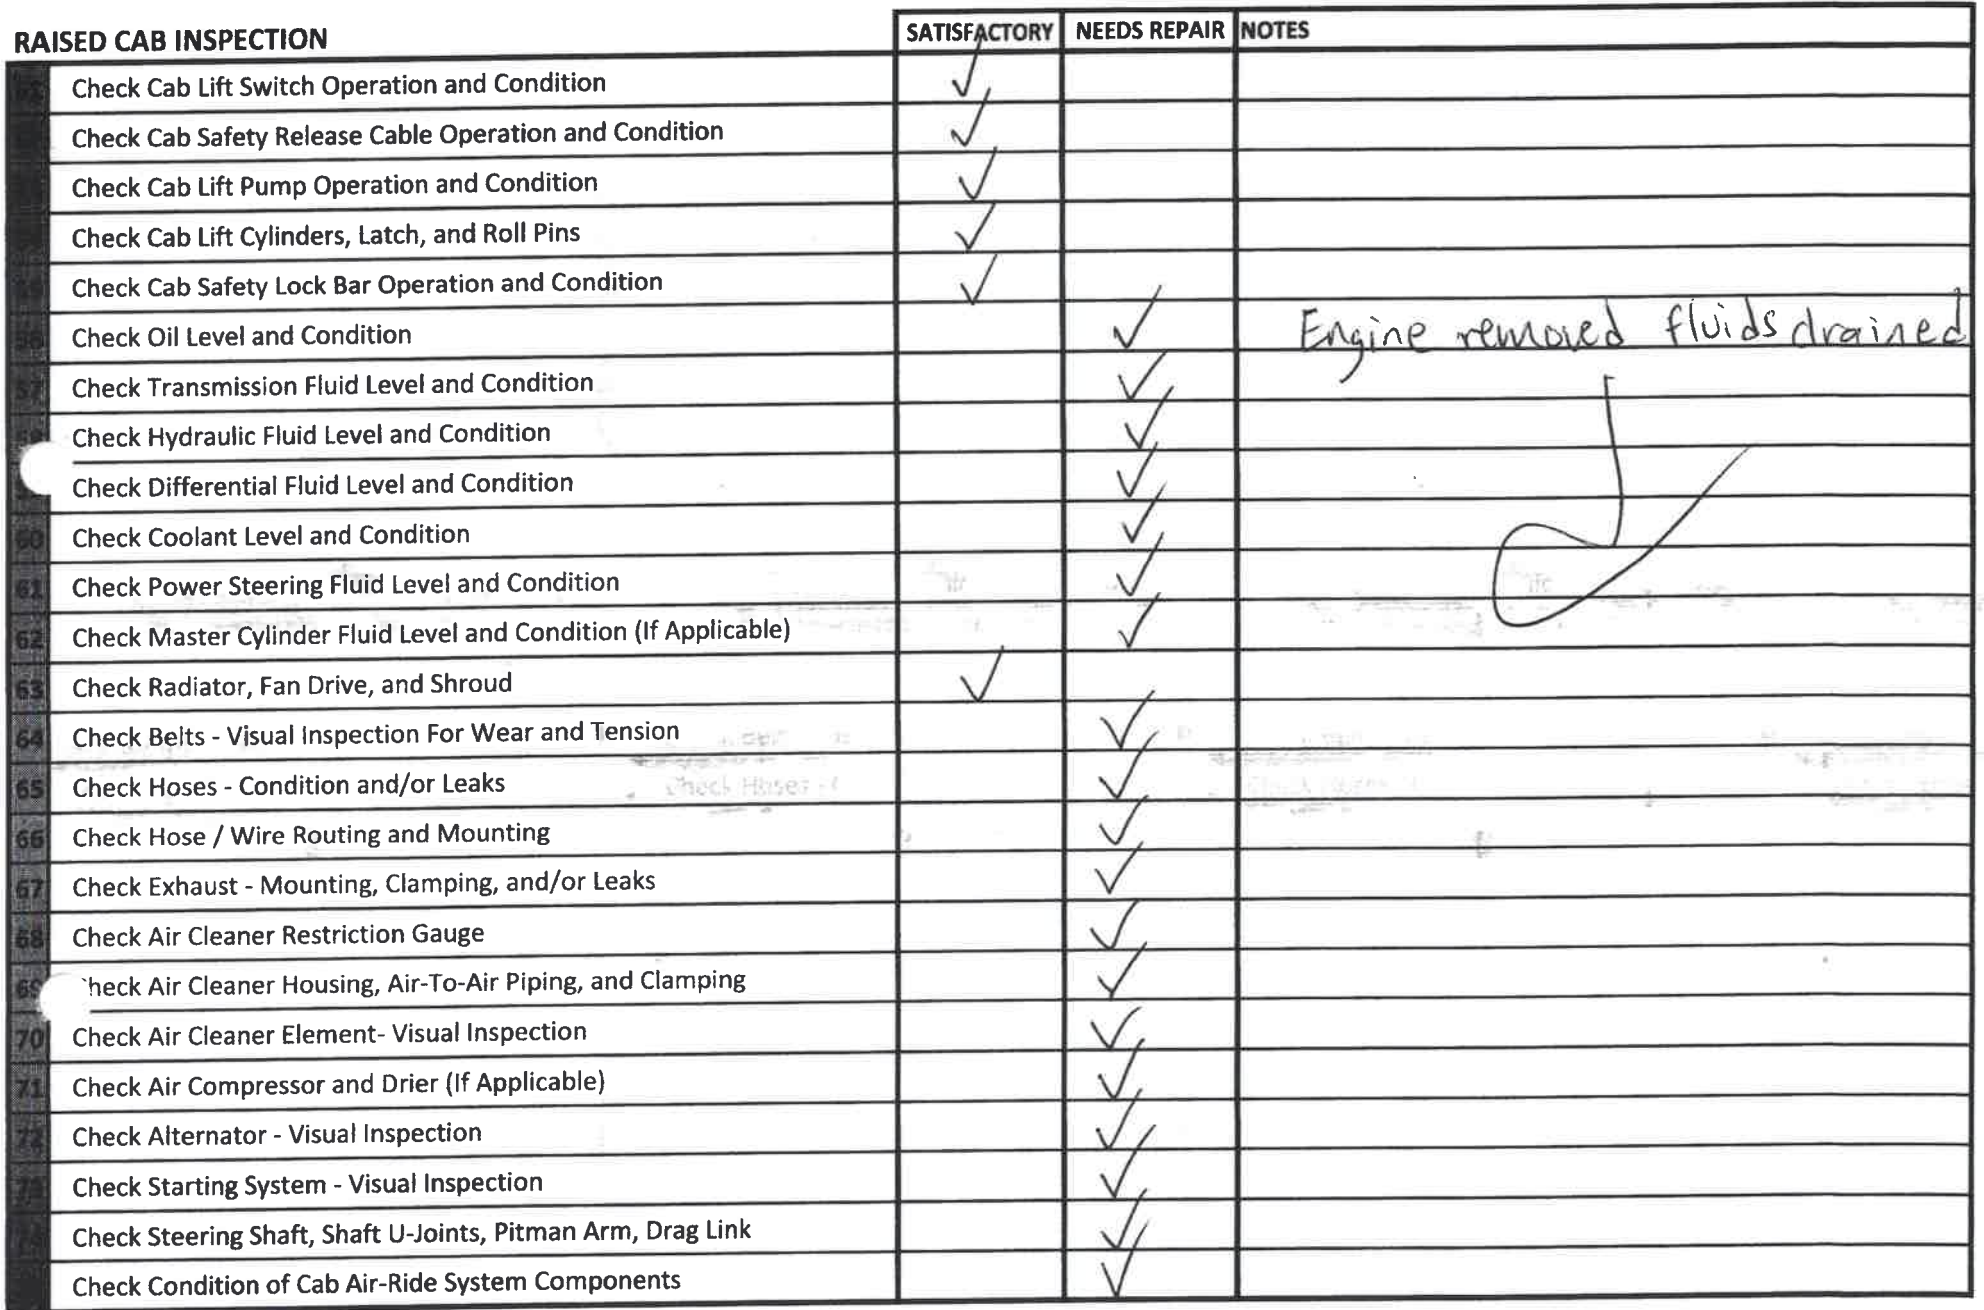 RAISED CAB INSPECTION SATISFACTORY NEEDS REPAIR NOTES
Check Cab Lift Switch Operation and Condition ✓
Check Cab Safety Release Cable Operation and Condition ✓
Check Cab Lift Pump Operation and Condition ✓
Check Cab Lift Cylinders, Latch, and Roll Pins ✓
Check Cab Safety Lock Bar Operation and Condition ✓
56 Check Oil Level and Condition ✓ Engine removed fluids drained
57 Check Transmission Fluid Level and Condition ✓
58 Check Hydraulic Fluid Level and Condition ✓
Check Differential Fluid Level and Condition ✓
60 Check Coolant Level and Condition ✓
61 Check Power Steering Fluid Level and Condition ✓
62 Check Master Cylinder Fluid Level and Condition (If Applicable) ✓
63 Check Radiator, Fan Drive, and Shroud ✓
64 Check Belts - Visual Inspection For Wear and Tension ✓
65 Check Hoses - Condition and/or Leaks ✓
66 Check Hose / Wire Routing and Mounting ✓
67 Check Exhaust - Mounting, Clamping, and/or Leaks ✓
68 Check Air Cleaner Restriction Gauge ✓
69 heck Air Cleaner Housing, Air-To-Air Piping, and Clamping ✓
70 Check Air Cleaner Element- Visual Inspection ✓
71 Check Air Compressor and Drier (If Applicable) ✓
72 Check Alternator - Visual Inspection ✓
73 Check Starting System - Visual Inspection ✓
Check Steering Shaft, Shaft U-Joints, Pitman Arm, Drag Link ✓
Check Condition of Cab Air-Ride System Components ✓